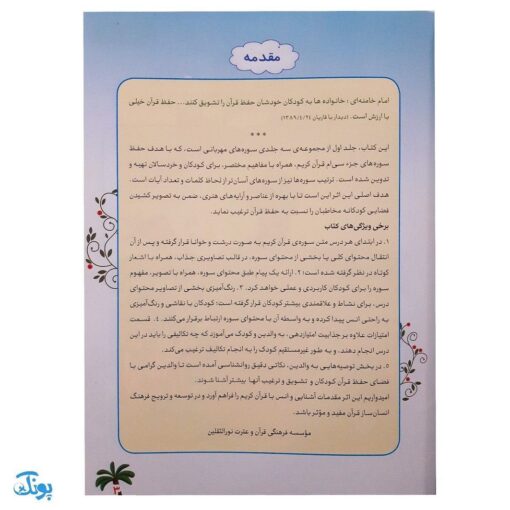 مقدمه
امام خامنه‌ای: خانواده ها به کودکان خودشان حفظ قرآن را تشویق کنند... حفظ قرآن خیلی
با ارزش است. (دیدار با قاریان ۱۳۸۹/۴/۲۴)
***
این کتاب، جلد اول از مجموعه‌ی سه جلدی سوره‌های مهربانی است، که با هدف حفظ
سوره‌های جزء سی‌ام قرآن کریم، همراه با مفاهیم مختصر، برای کودکان و خردسالان تهیه و
تدوین شده است. ترتیب سوره‌ها نیز از سوره‌های آسان‌تر از لحاظ کلمات و تعداد آیات است.
هدف اصلی این اثر این است تا با بهره از عناصر و آرایه‌های هنری، ضمن به تصویر کشیدن
فضایی کودکانه مخاطبان را نسبت به حفظ قرآن ترغیب نماید.
برخی ویژگی‌های کتاب
۱. در ابتدای هر درس متن سوره‌ی قرآن کریم به صورت درشت و خوانا قرار گرفته و پس از آن
انتقال محتوای کلی یا بخشی از محتوای سوره، در قالب تصاویری جذاب، همراه با اشعار
کوتاه در نظر گرفته شده است؛ ۲. ارائه یک پیام طبق محتوای سوره، همراه با تصویر، مفهوم
سوره را برای کودکان کاربردی و عملی خواهد کرد. ۳. رنگ‌آمیزی بخشی از تصاویر محتوای
درس، برای نشاط و علاقمندی بیشتر کودکان قرار گرفته است؛ کودکان با نقاشی و رنگ‌آمیزی
به راحتی انس پیدا کرده و به واسطه آن با محتوای سوره ارتباط برقرار می‌کنند. ۴. قسمت
امتیازات علاوه بر جذابیت امتیازدهی، به والدین و کودک می‌آموزد که چه تکالیفی را باید در این
درس انجام دهند. و به طور غیرمستقیم کودک را به انجام تکالیف ترغیب می‌کند.
۵. در بخش توصیه‌هایی به والدین، نکاتی دقیق روانشناسی آمده است تا والدین گرامی با
فضای حفظ قرآن کودکان و تشویق و ترغیب آنها بیشتر آشنا شوند.
امیدواریم این اثر مقدمات آشنایی و انس با قرآن کریم را فراهم آورد و در توسعه و ترویج فرهنگ
انسان‌ساز قرآن مفید و مؤثر باشد.
مؤسسه فرهنگی قرآن و عترت نورالثقلین
۳
پونک